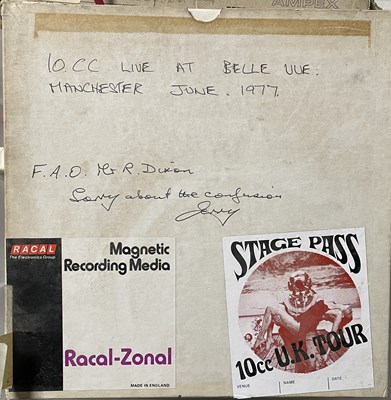 AMPEX
10.CC LIVE AT BELLE VUE.
MANCHESTER JUNE. 1977.
F.A.O. Mr R. Dixon
Sorry about the confusion
Jerry
RACAL
The Electronics Group
Magnetic
Recording Media
Racal-Zonal
MADE IN ENGLAND
STAGE PASS
10cc U.K. TOUR
VENUE NAME DATE